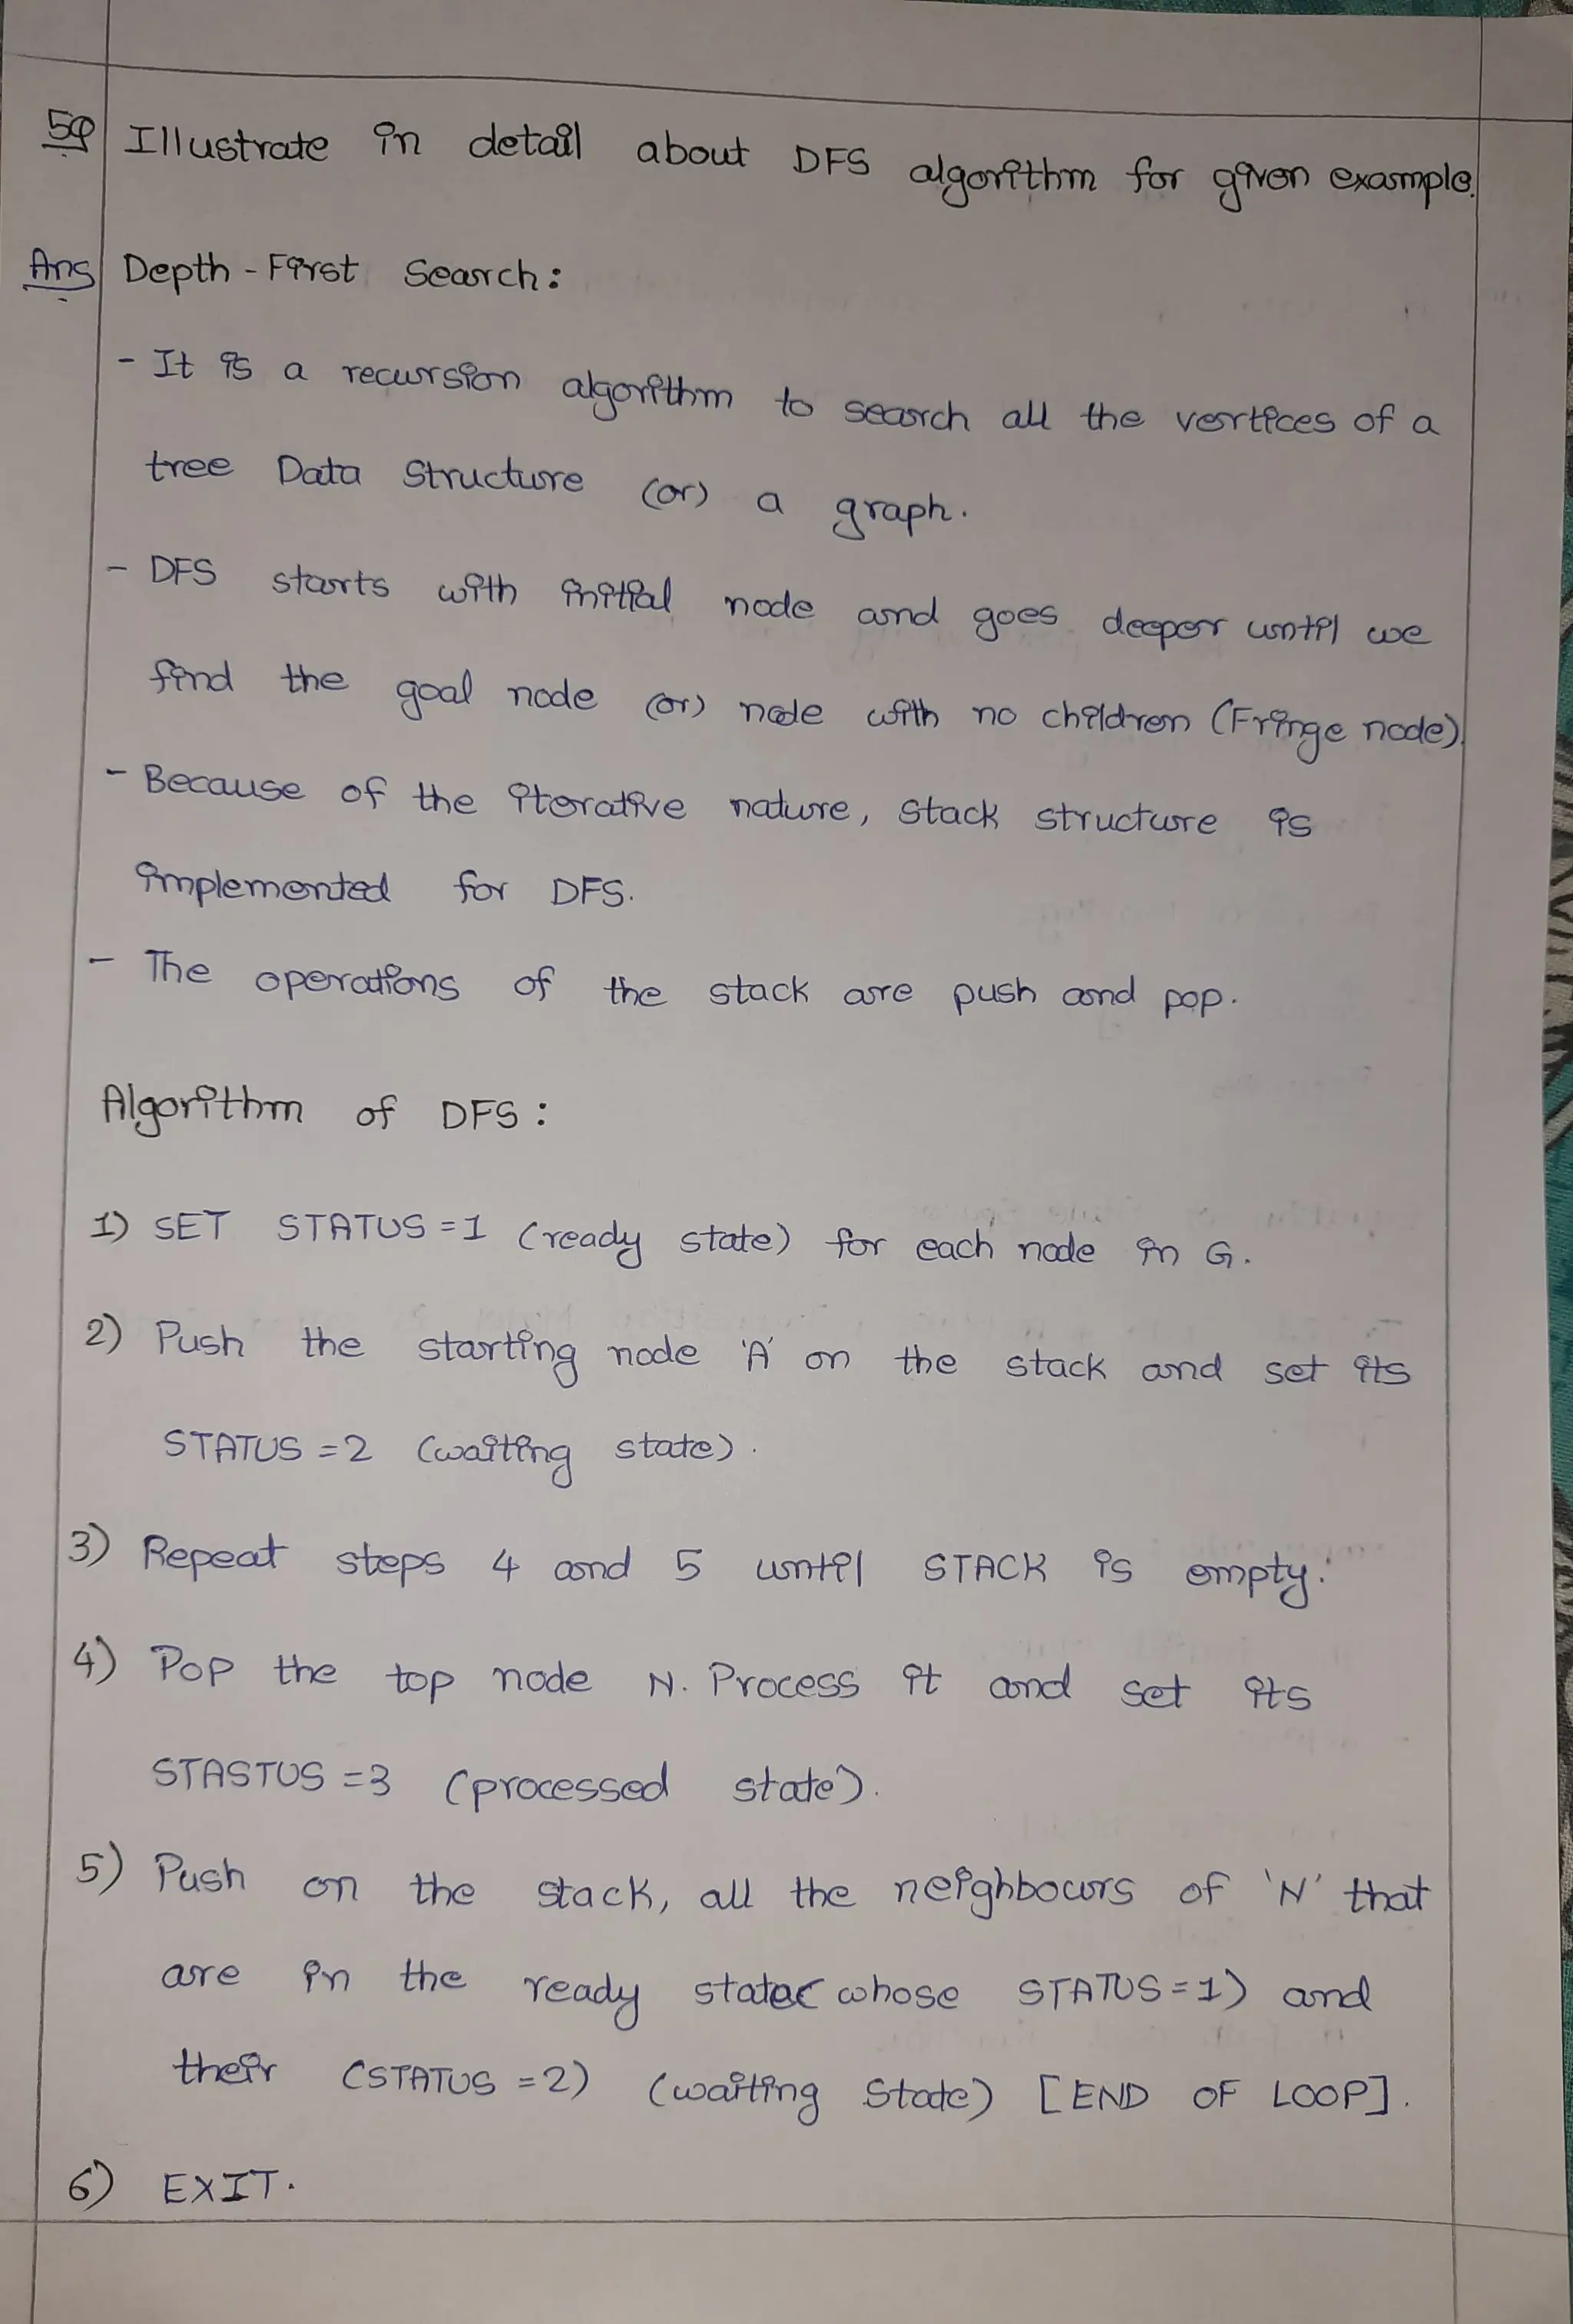 5Q Illustrate in detail about DFS algorithm for given example.
Ans Depth - First Search:
- It is a recursion algorithm to search all the vertices of a
tree Data Structure (or) a graph.
- DFS starts with initial node and goes deeper until we
find the goal node (or) node with no children (Fringe node).
- Because of the iterative nature, stack structure is
implemented for DFS.
- The operations of the stack are push and pop.
Algorithm of DFS:
1) SET STATUS = 1 (ready state) for each node in G.
2) Push the starting node 'A' on the stack and set its
STATUS = 2 (waiting state).
3) Repeat steps 4 and 5 until STACK is empty.
4) Pop the top node N. Process it and set its
STASTUS = 3 (processed state).
5) Push on the stack, all the neighbours of 'N' that
are in the ready state (whose STATUS = 1) and
their (STATUS = 2) (waiting State) [END OF LOOP].
6) EXIT.